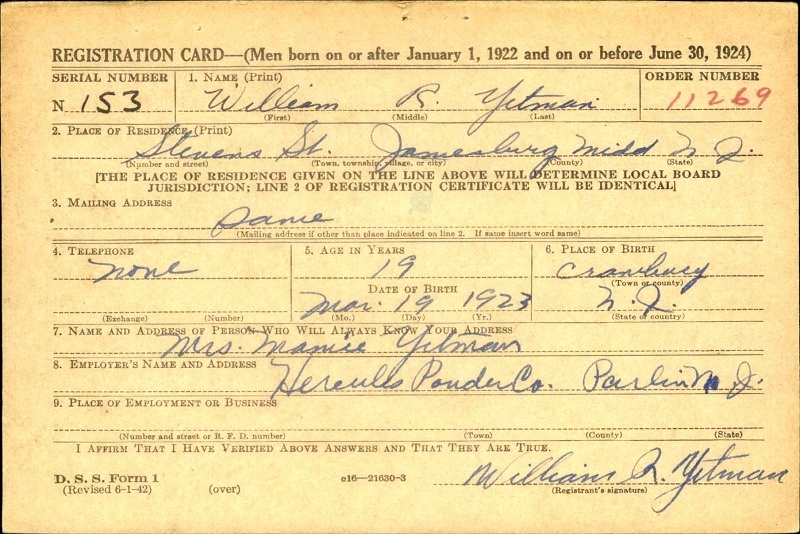 REGISTRATION CARD—(Men born on or after January 1, 1922 and on or before June 30, 1924)
SERIAL NUMBER 1. NAME (Print) ORDER NUMBER
N 153 William R. Yetman 11269
(First) (Middle) (Last)
2. PLACE OF RESIDENCE (Print)
Stevens St. Jamesburg Midd N. J.
(Number and street) (Town, township, village, or city) (County) (State)
[THE PLACE OF RESIDENCE GIVEN ON THE LINE ABOVE WILL DETERMINE LOCAL BOARD
JURISDICTION; LINE 2 OF REGISTRATION CERTIFICATE WILL BE IDENTICAL]
3. MAILING ADDRESS
Same
(Mailing address if other than place indicated on line 2. If same insert word same)
4. TELEPHONE 5. AGE IN YEARS 6. PLACE OF BIRTH
none 19 Cranbury
(Town or county)
DATE OF BIRTH
Mar. 19 1923 N. J.
(Exchange) (Number) (Mo.) (Day) (Yr.) (State or country)
7. NAME AND ADDRESS OF PERSON WHO WILL ALWAYS KNOW YOUR ADDRESS
Mrs. Yetman
8. EMPLOYER'S NAME AND ADDRESS
Hercules Powder Co. Parlin N. J.
9. PLACE OF EMPLOYMENT OR BUSINESS
(Number and street or R. F. D. number) (Town) (County) (State)
I AFFIRM THAT I HAVE VERIFIED ABOVE ANSWERS AND THAT THEY ARE TRUE.
D. S. S. Form 1 c16—21630-3 William R. Yetman
(Revised 6-1-42) (over) (Registrant's signature)